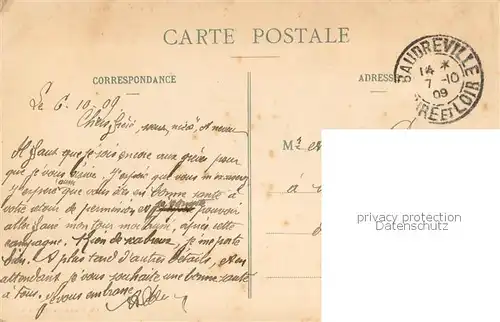 CARTE POSTALE
CORRESPONDANCE
ADRESSE
BAUDREVILLE
14 *
7 -10
09
EURE ET LOIR
Le 6. 10. 09
Chers frère, sœur, nièce, et neveu
Il faut que je sois encore aux grèves pour
que je vous écrive. J'espère que vous m'excusez
J'espère que vous êtes en bonne santé à
votre retour de permission et pouvoir
aller faire mon tour moi aussi, après cette
campagne. je me porte
bien. A plus tard d'autres détails, et en
attendant je vous souhaite une bonne santé
à tous. Je vous embrasse
Mr et
à
privacy protection
Datenschutz